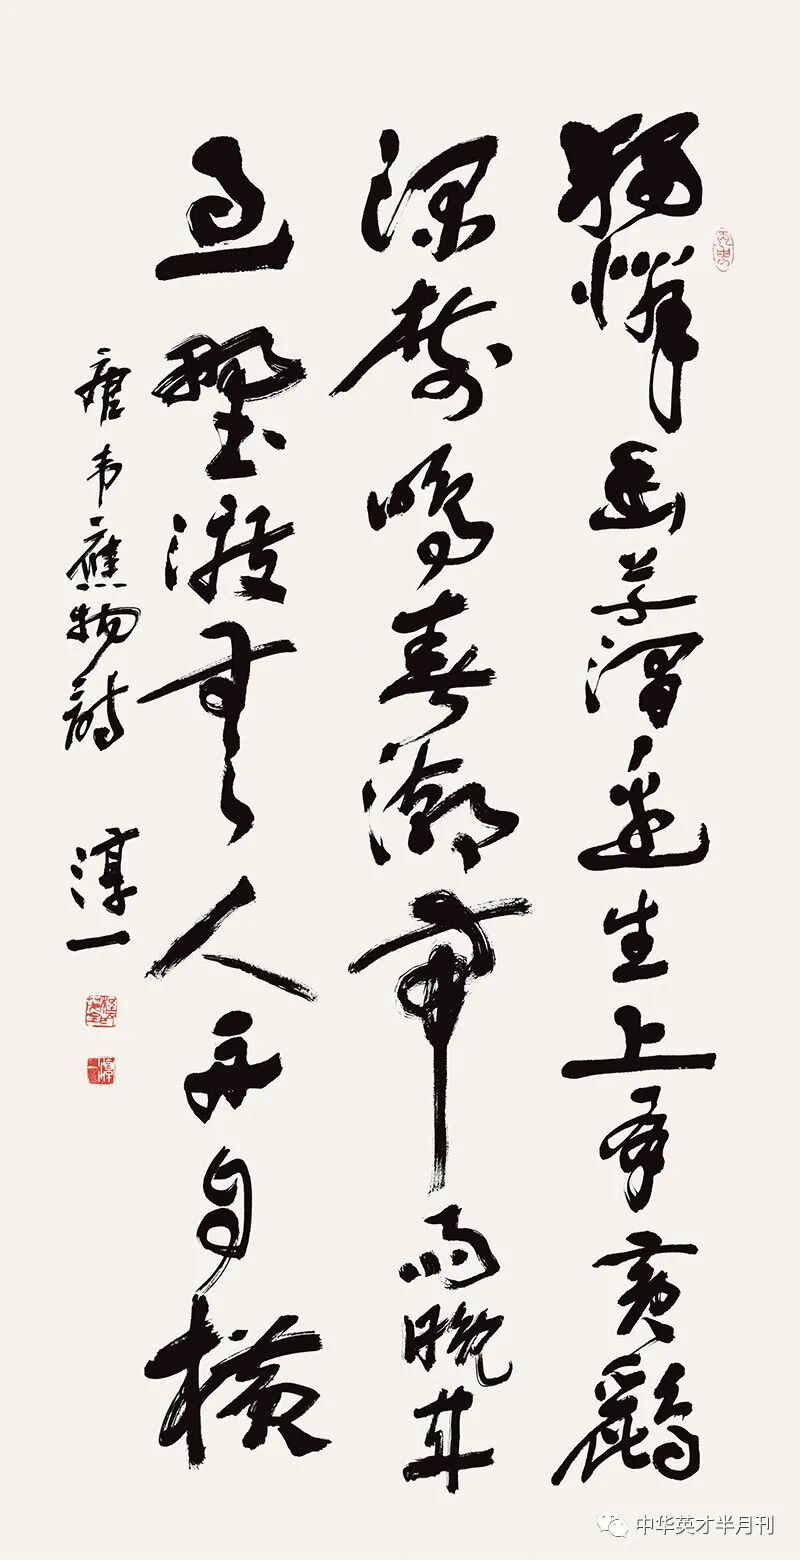 獨憐幽草澗邊生上有黃鸝
深樹鳴春潮帶雨晚來
急野渡無人舟自橫
唐韋應物詩 淳一
中华英才半月刊